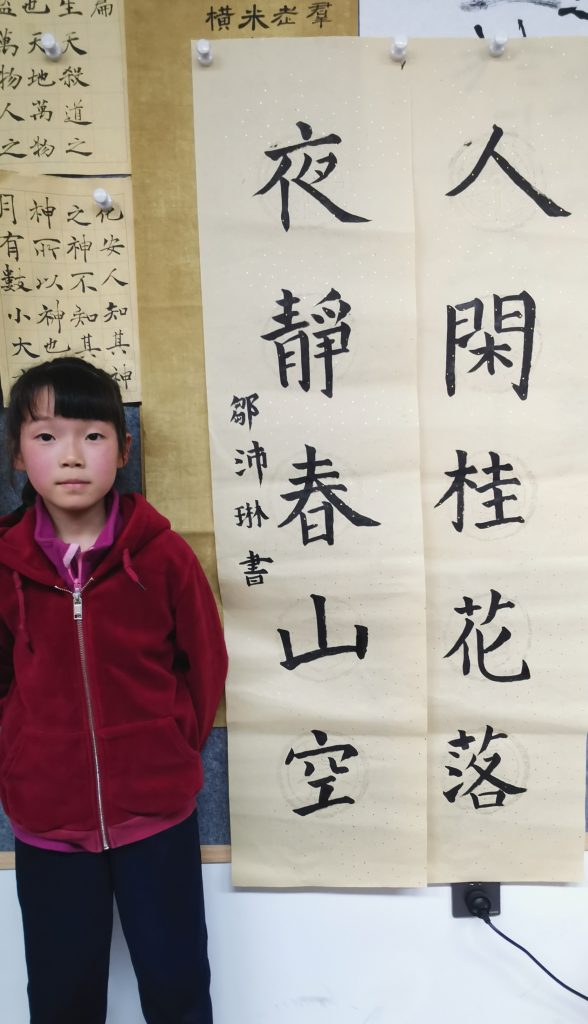 人閑桂花落
夜靜春山空
鄒沛琳書
生天殺道之
也天地萬物
萬物人之
化安人知其神
之神不知其
神所以神也
月有數小大